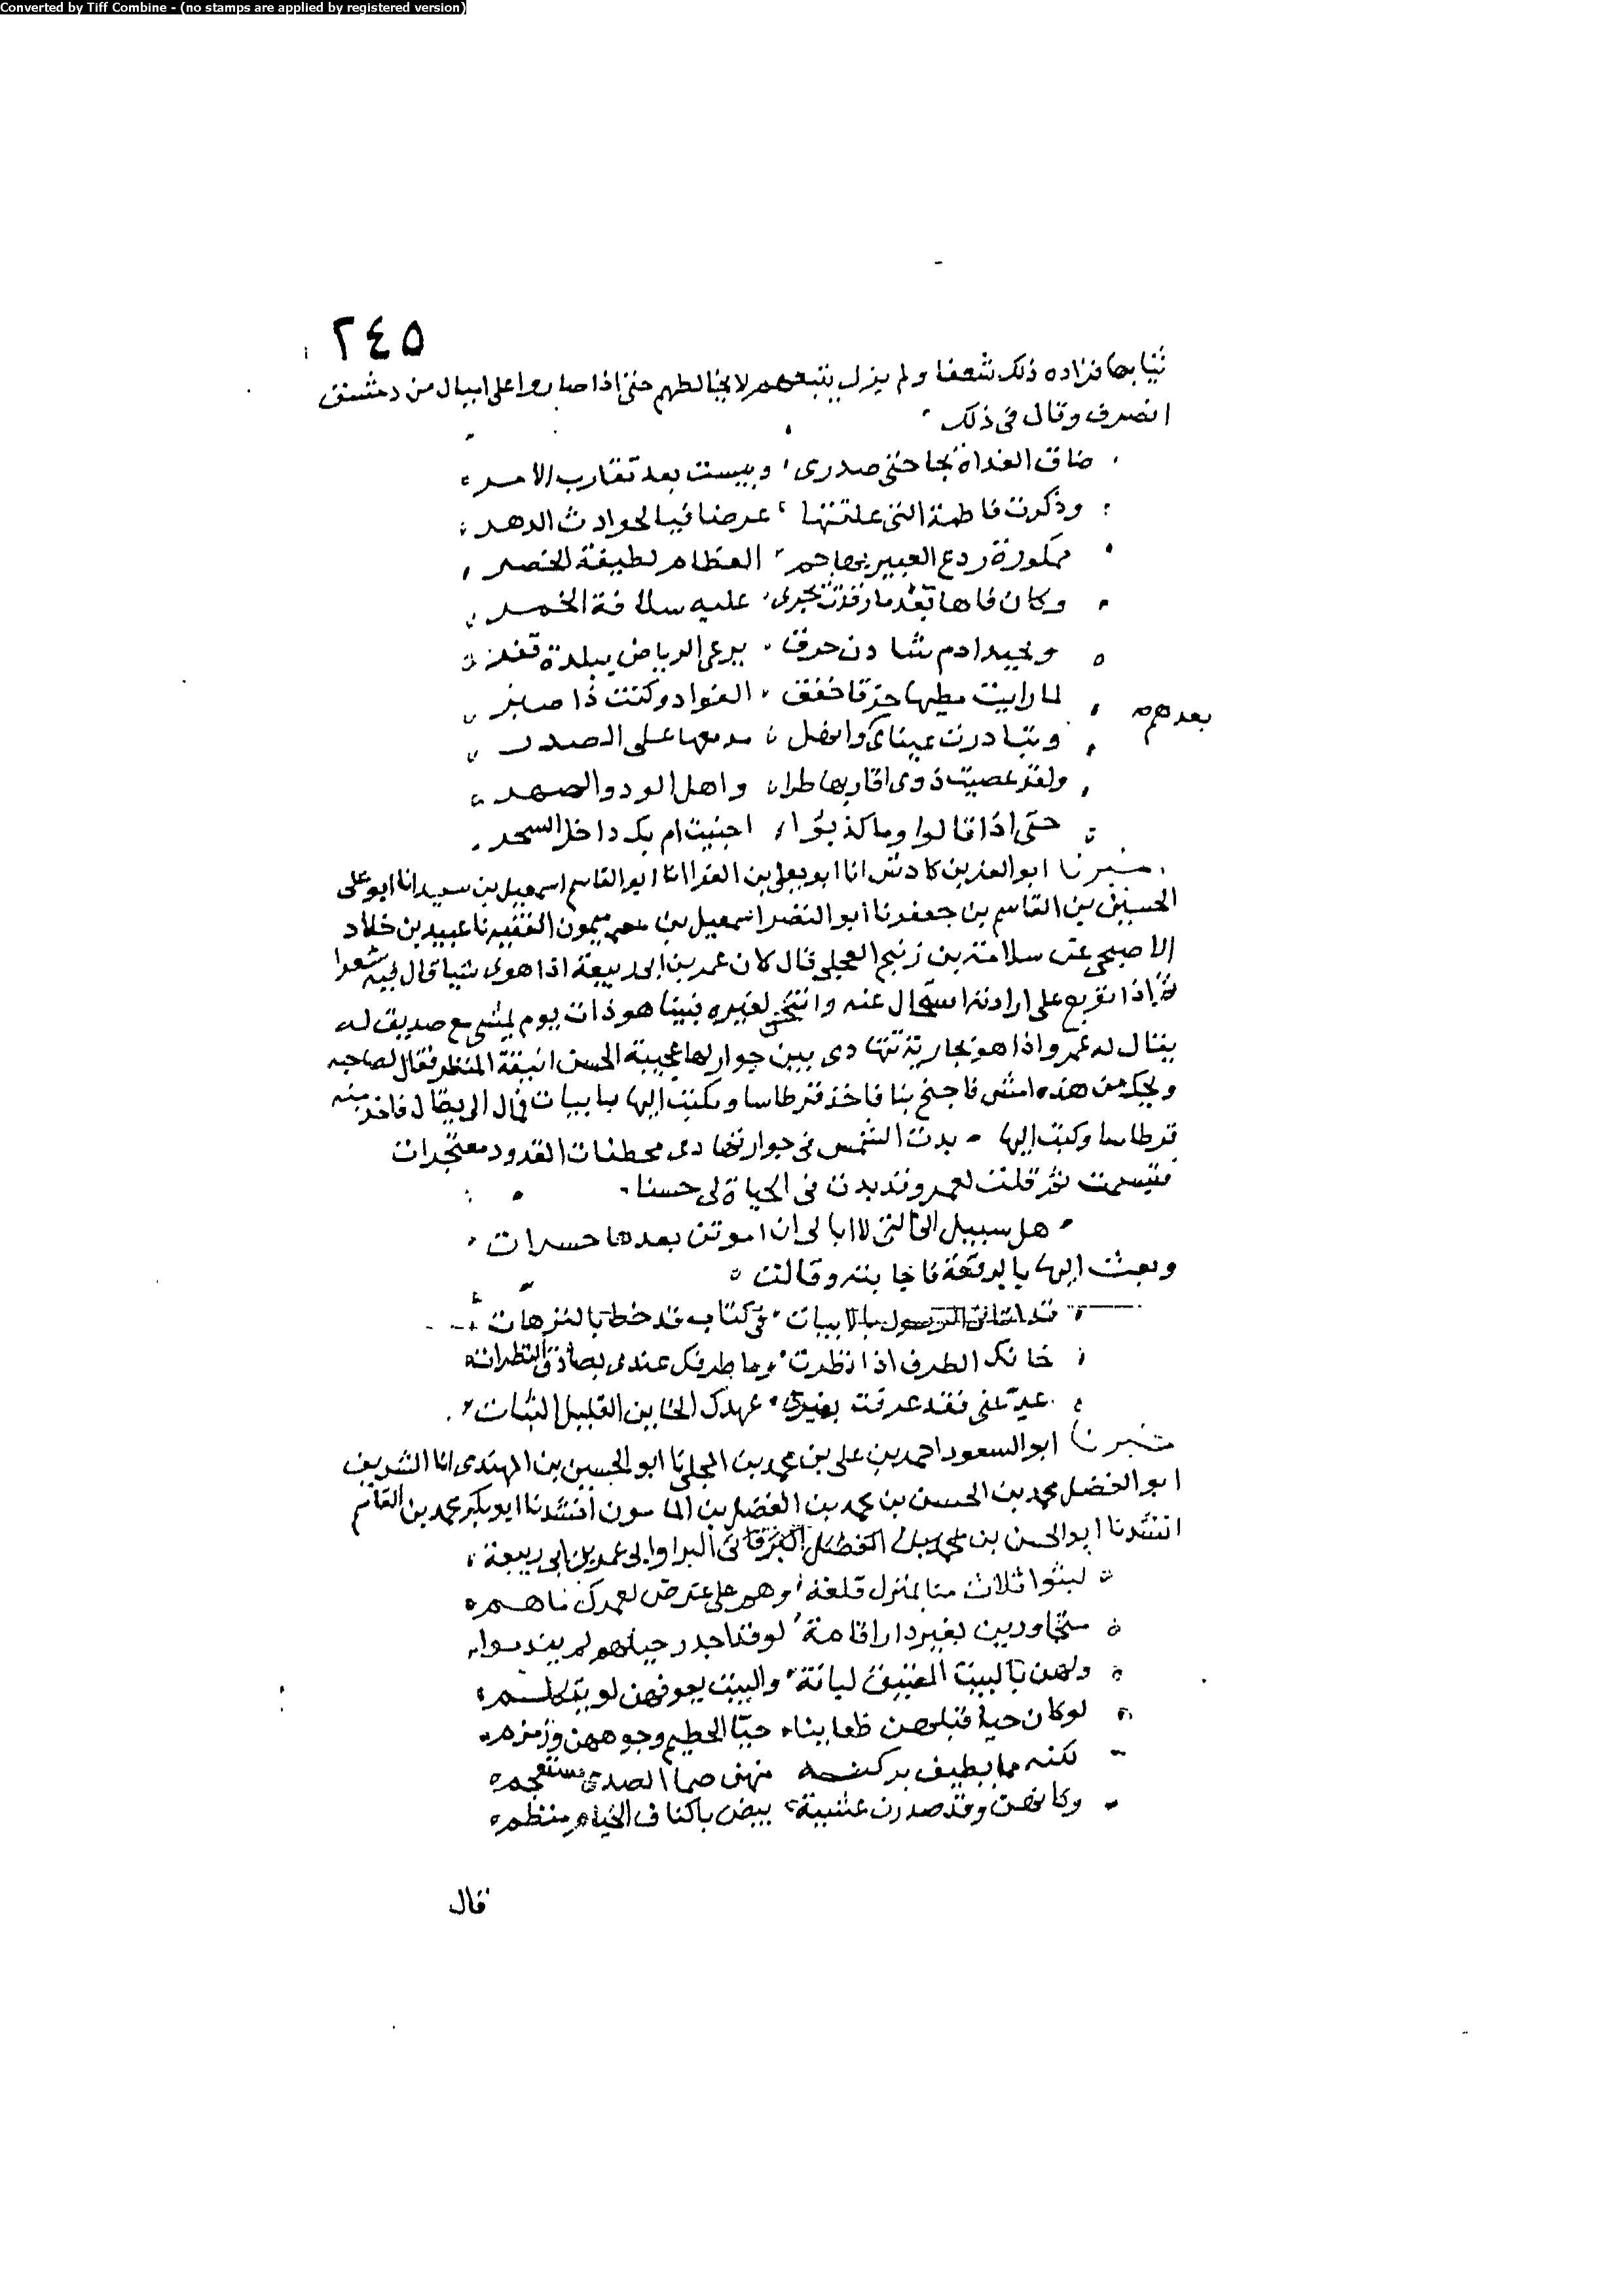 Converted by Tiff Combine - (no stamps are applied by registered version)
٢٤٥
ثيابها فزاده ذلك شغفا ولم يزل يتبعهم لا يخالطهم حتى اذا صاروا على اميال من دمشق
انصرف وقال في ذلك
ضاق الغداة بحاجتي صدرى ويئست بعد تقارب الامر
وذكرت فاطمة التي علقتها عرضا فيا لحوادث الدهر
ممكورة ردع العبير بها جم العظام لطيفة الخصر
وكان فاها بعد ما رقدت تجرى عليه سلافة الخمر
وبجيد ادم شادن خرق يرعى الرياض ببلدة قفر
لما رايت مطيها حزقا خفق الفواد وكنت ذا صبر
بعدهم
وتبادرت عيناى وانهمل مدمعها على الصدر
ولقد عصيت ذوى اقاربها طرا واهل الود والصهر
حتى اذا قالوا وما كذبوا اجننت ام بك داخل السحر
ابو العز بن كادش انا ابو يعلى بن الفرا انا ابو القاسم اسمعيل بن سعيد انا ابو على
الحسين بن القاسم بن جعفر نا ابو النضر اسمعيل بن ميمون الفقيه نا عبيد بن خلاد
عن سلامة بن زنيج العجلى قال كان عمر بن ابى ربيعة اذا هوى شيا قال فيه شعرا
على ارادته استحال عنه لغيره فبينا هو ذات يوم يمشى مع صديق له
يقال له عمرو اذا هو بجارية تتهادى بين جوار لها عجيبة الحسن انيقة المنظر فقال لصاحبه
ويحك من هذه امش بنا فاخذ قرطاسا وكتب اليها بابيات فمال الى بقال فاخذ منه
قرطاسا وكتب اليها بدت الشمس في جوار تهادى مخطفات القدود معتجرات
فتبسمت ثم قلت لعمرو قد بدت في الحياة لى حسنا
هل سبيل الى التي لا ابالى ان اموتن بعدها حسرات
وبعث اليها بالرقعة فاجابته وقالت
قد اتانى الرسول بالابيات في كتاب قد خط بالترهات
خانك الطرف اذا نظرت وما طرفك عندى بصادق النظرات
عد عنى فقد عرفت بغيرى عهدك الخاين القليل الثبات
ابو السعود احمد بن على بن محمد بن المجلى نا ابو الحسين بن المهتدى انا الشريف
ابو الفضل محمد بن الحسن بن محمد بن الفضل بن المامون انشدنا ابو بكر محمد بن القاسم
انشدنا ابو الحسن بن لعمر بن ابى ربيعة
لبثوا ثلاث منا بمنزل قلعة وهم على غرض لعمرك ما هم
متجاورين بغير دار اقامة لو قد اجد رحيلهم لم يندموا
ولهن بالبيت العتيق لبانة والبيت يعرفهن لو يتكلم
لو كان حيا قبلهن ظعاينا حيا الحطيم وجوههن وزمزم
لكنه مما يطيف بركنه منهن صما الصدى مستعجم
وكانهن وقد صدرن عشية بيض باكناف الخيام منظم
قال